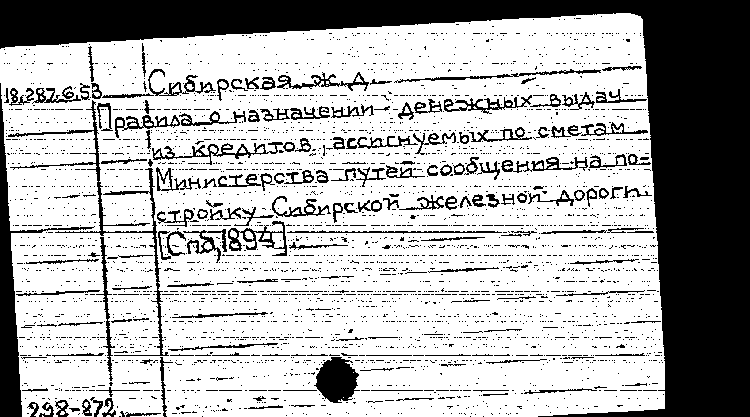 18.287.6.53
Сибирская ж. д.
Правила о назначении денежных выдач
из кредитов, ассигнуемых по сметам
Министерства путей сообщения на по=
стройку Сибирской железной дороги.
[Спб, 1894].
298-872.